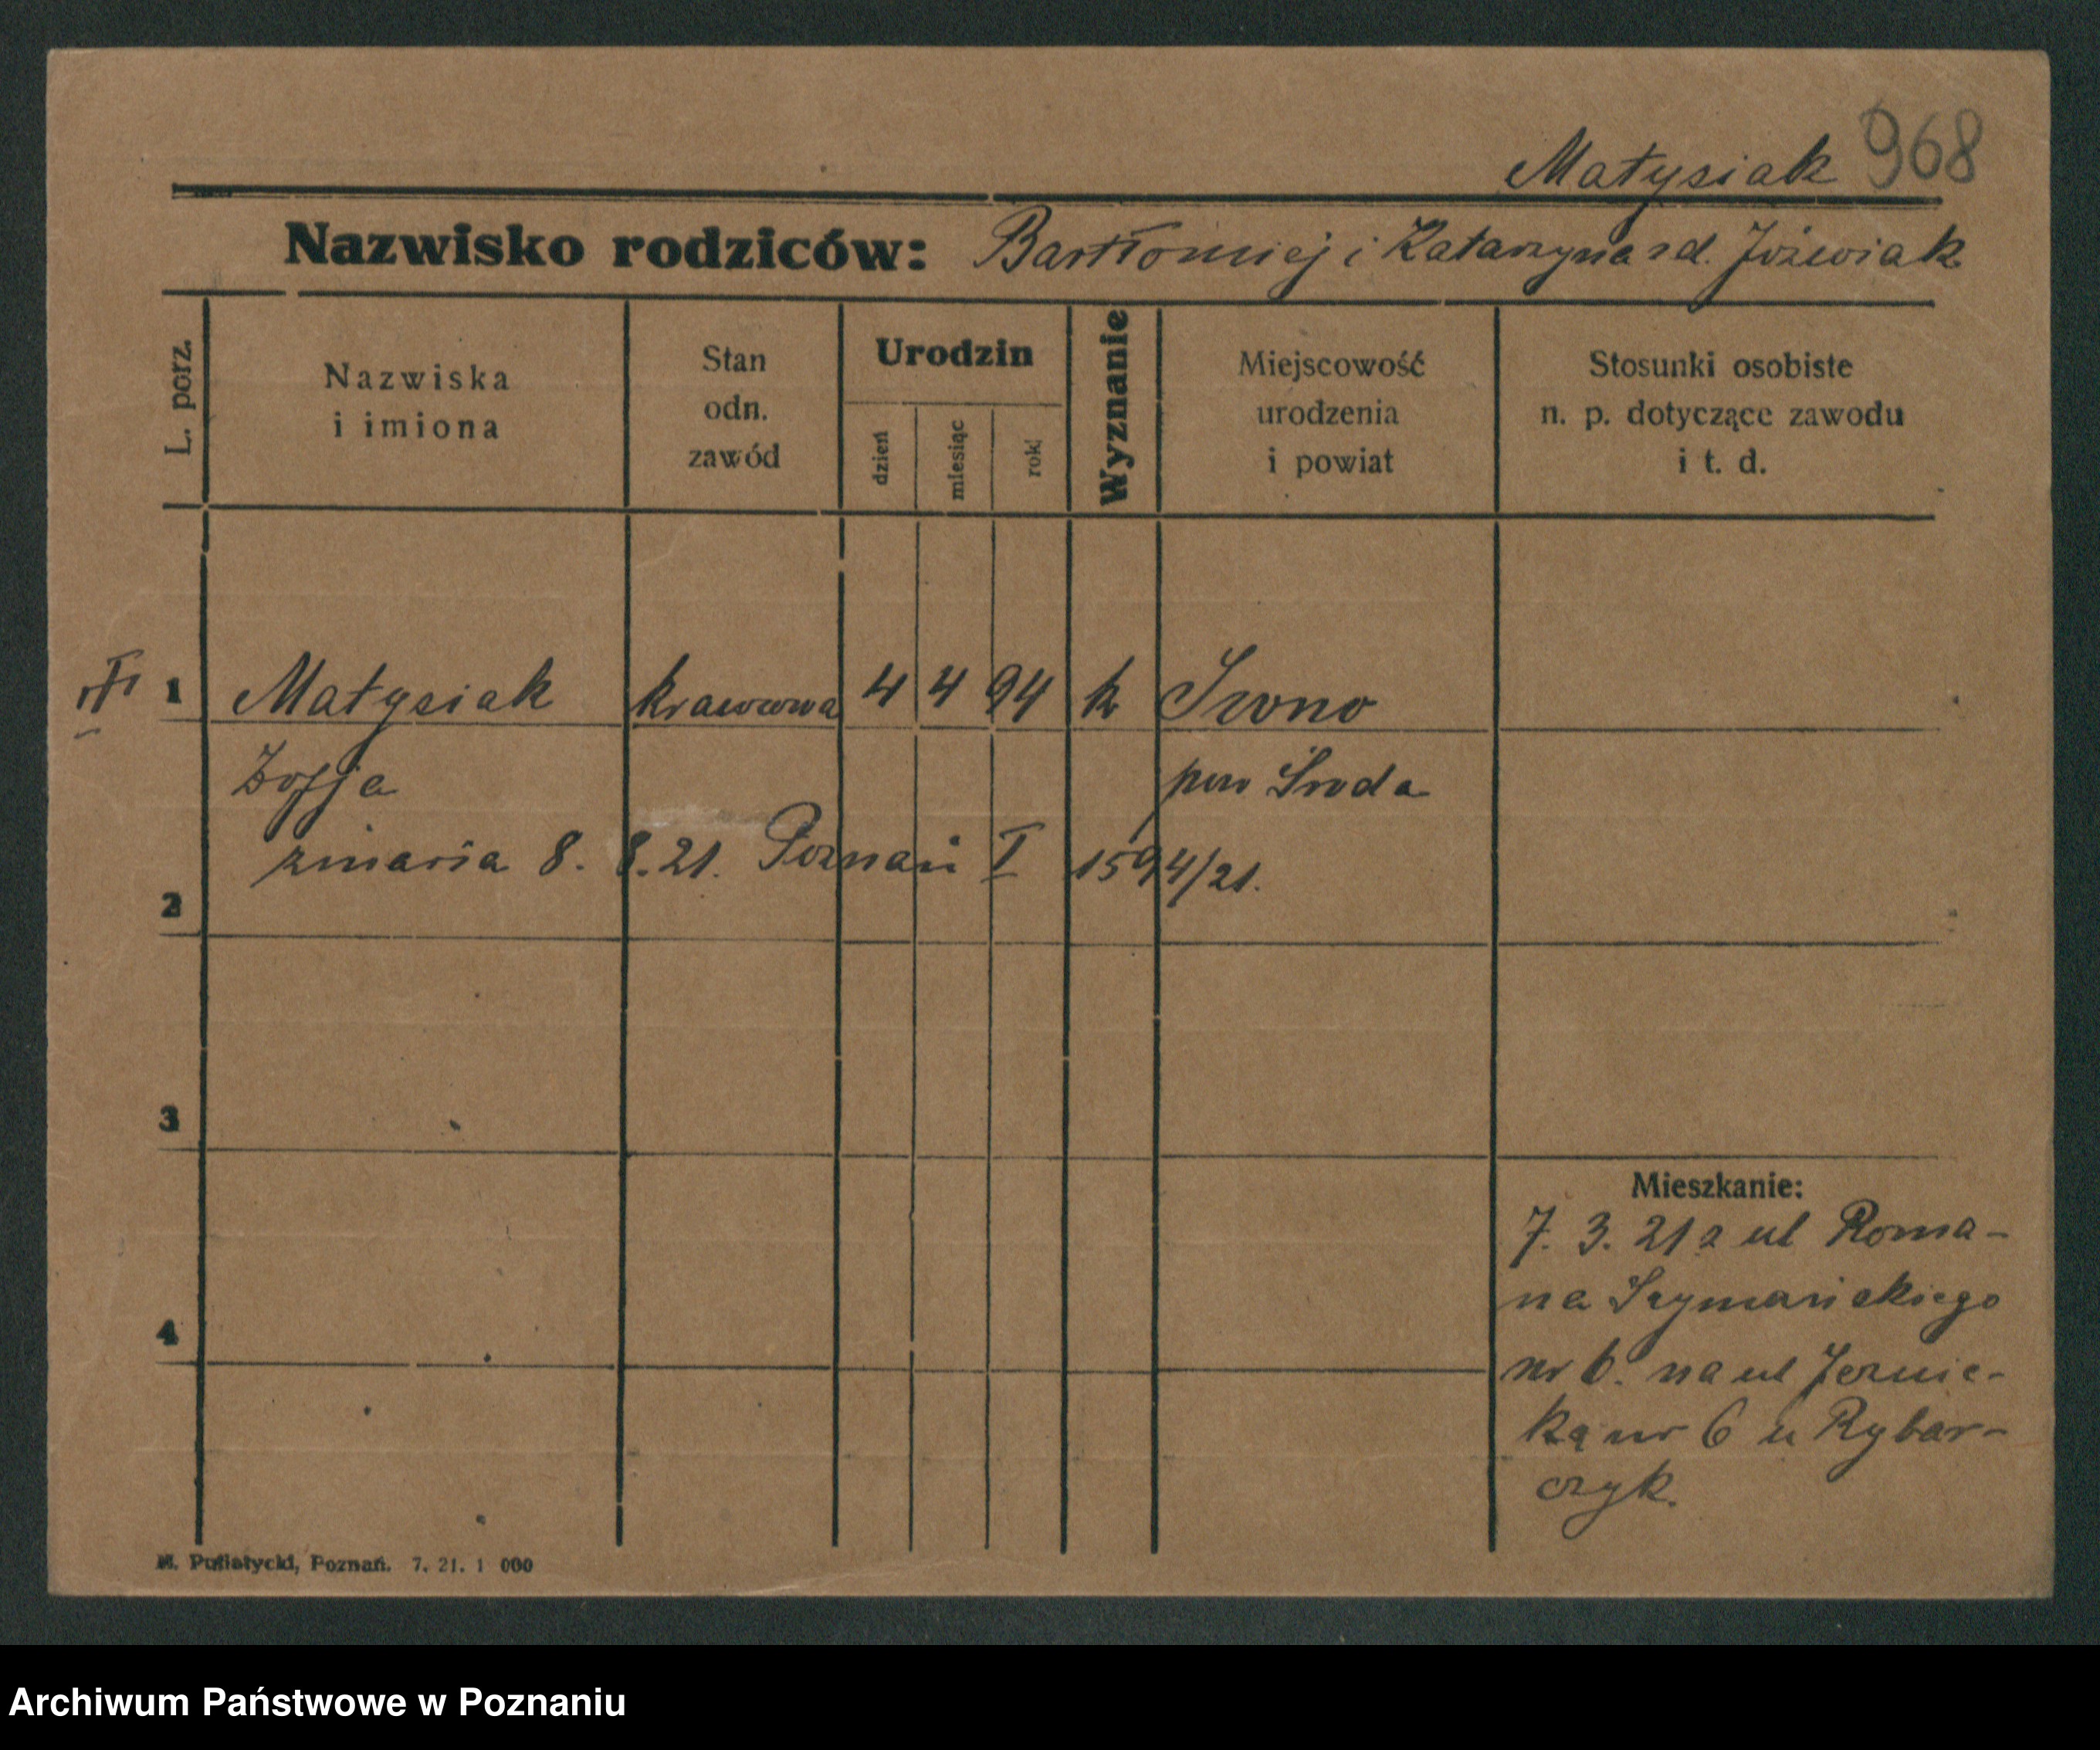 Matysiak 968
Nazwisko rodziców: Bartłomiej i Katarzyna zd. Jóźwiak
L. porz.
Nazwiska
i imiona
Stan
odn.
zawód
Urodzin
dzień
miesiąc
rok
Wyznanie
Miejscowość
urodzenia
i powiat
Stosunki osobiste
n. p. dotyczące zawodu
i t. d.
1 Matysiak krawcowa 4 4 94 k Iwno
Zofja pow Środa
zmarła 8. 8. 21. Poznań I 1594/21.
2
3
Mieszkanie:
7. 3. 21 z ul Roma-
na Szymańskiego
4
nr 6. na ul
nr 6 u Rybar-
czyk.
Poznań. 7. 21. 1 000
Archiwum Państwowe w Poznaniu